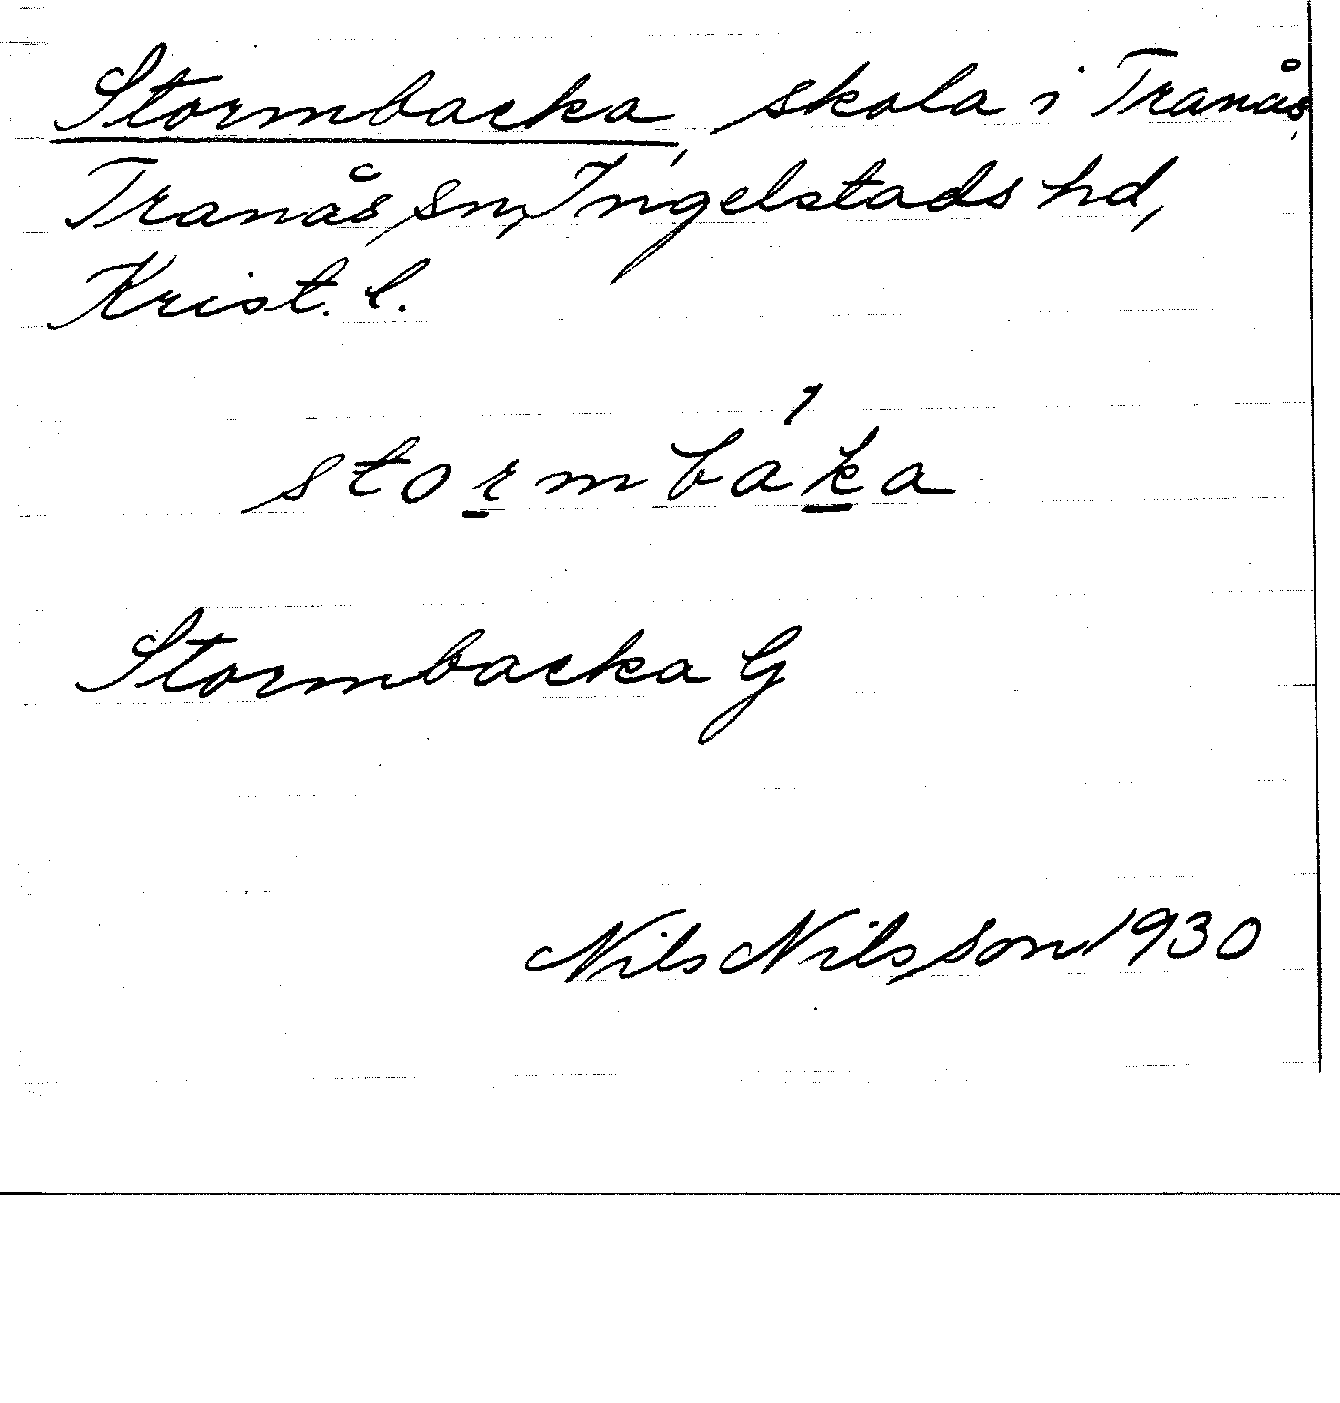 Stormbacka, skola i Tranås,
Tranås sn, Ingelstads hd,
Krist. l.
stormba1ka
Stormbacka G
Nils Nilsson 1930